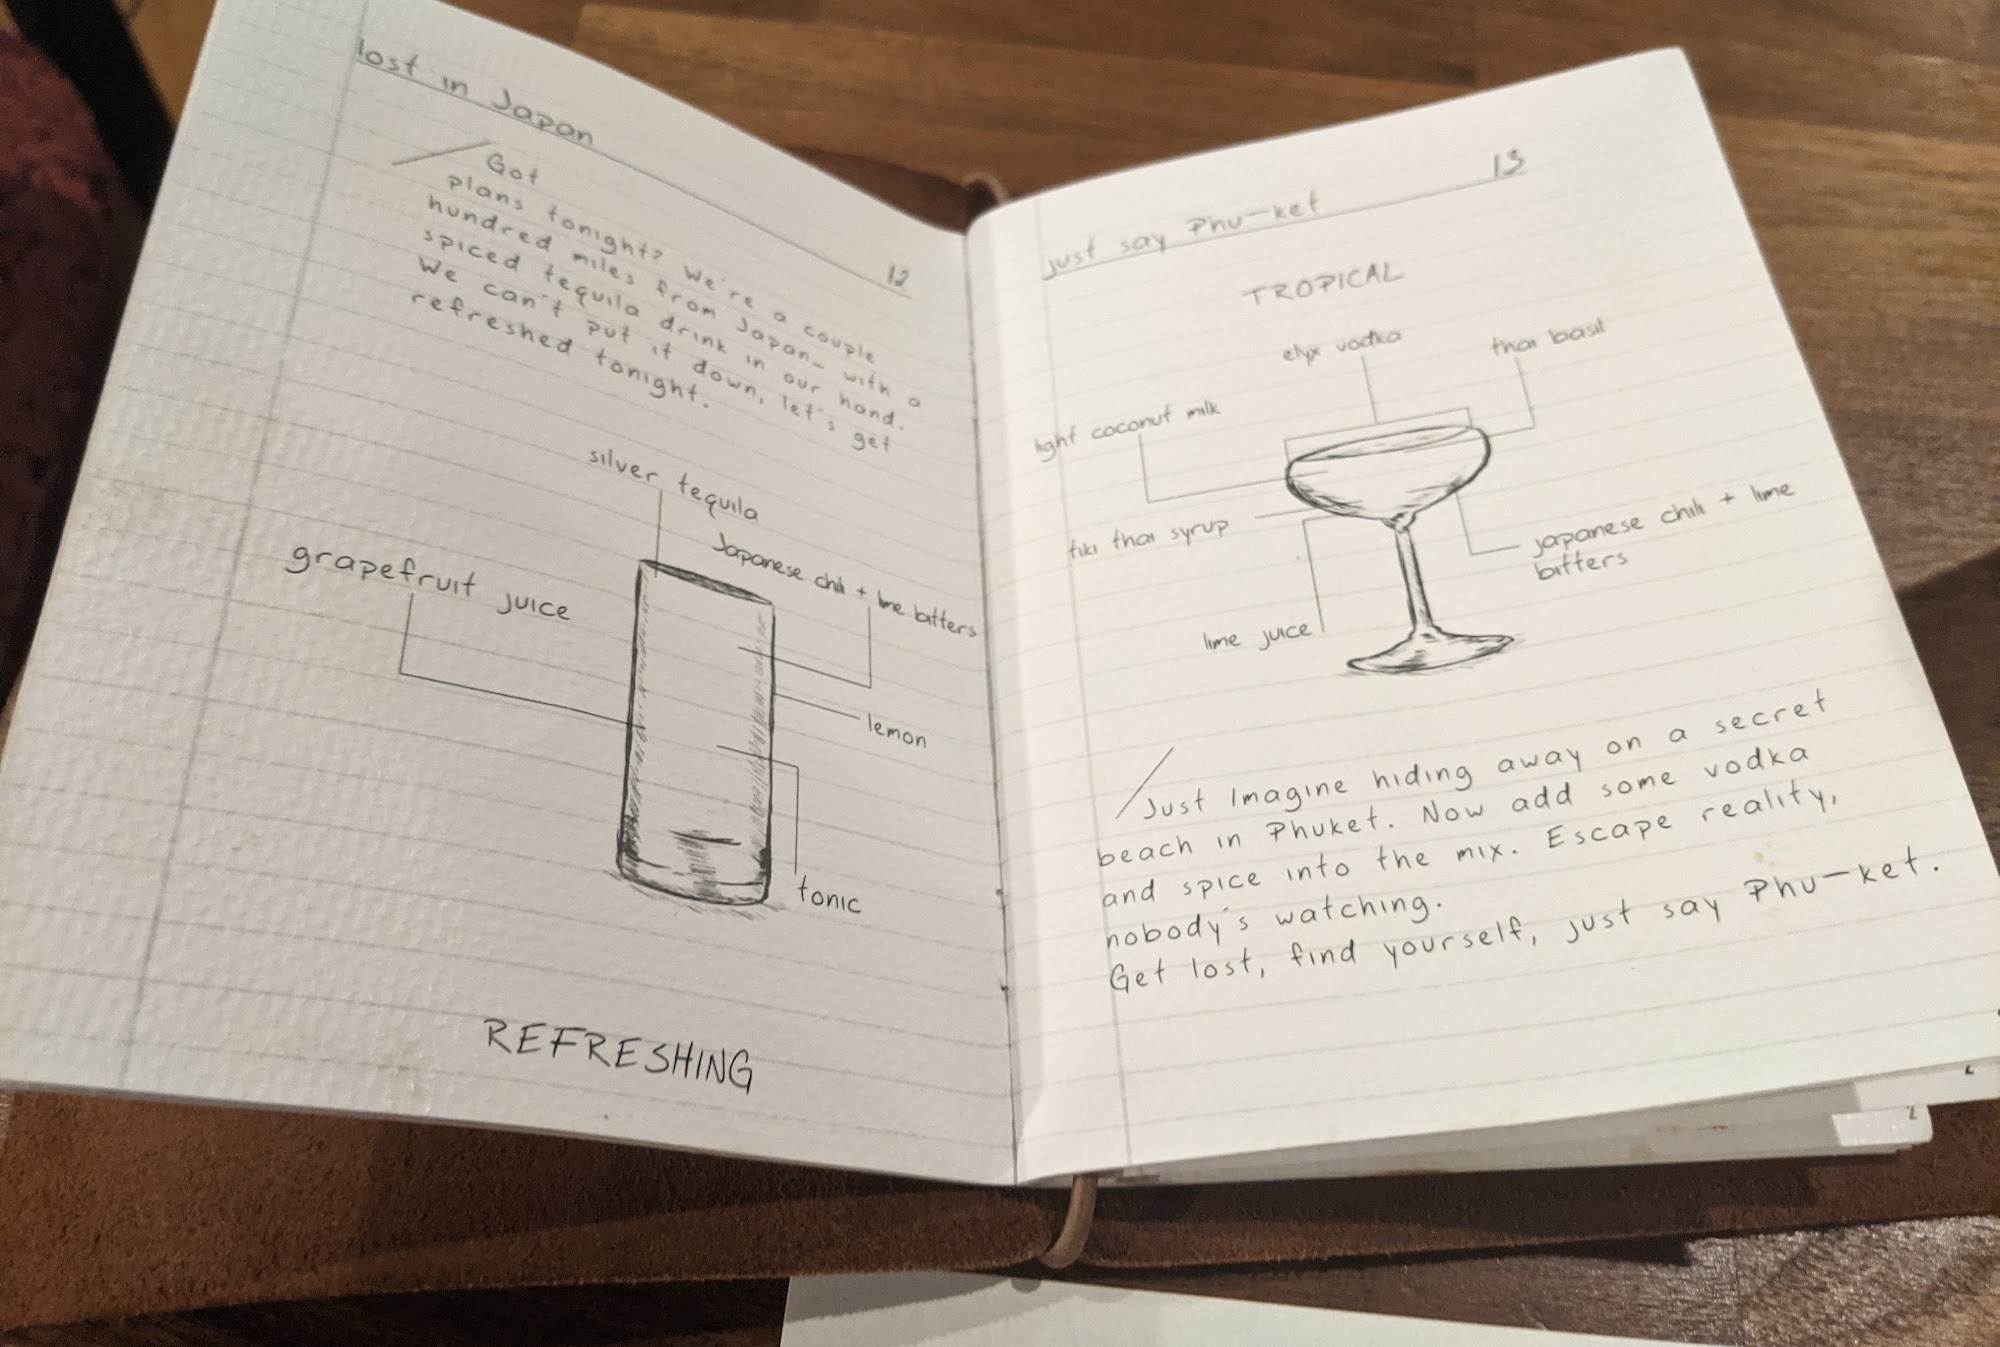 lost in Japan
12
Got
plans tonight? We're a couple
hundred miles from Japan_ with a
spiced tequila drink in our hand.
We can't put it down, let's get
refreshed tonight.
silver tequila
Japanese chili + lime bitters
grapefruit juice
lemon
tonic
REFRESHING
just say Phu-ket
13
TROPICAL
elyx vodka
thai basil
light coconut milk
tiki thai syrup
japanese chili + lime
bitters
lime juice
Just Imagine hiding away on a secret
beach in Phuket. Now add some vodka
and spice into the mix. Escape reality,
nobody's watching.
Get lost, find yourself, just say Phu-ket.